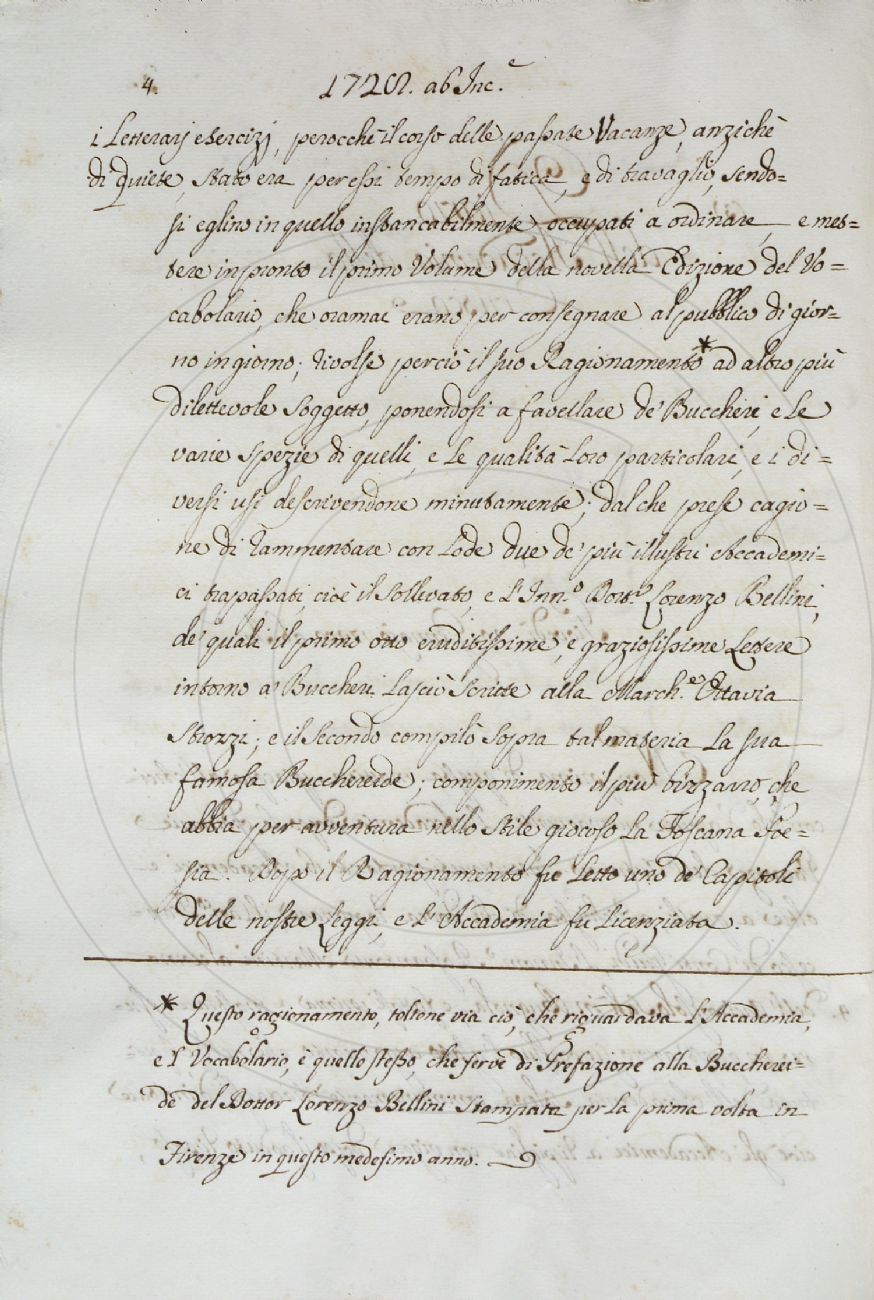 4.
1728. ab Inc.e
i Letterarj esercizj, perocchè il corso delle passate Vacanze, anzichè
di quiete, stato era per essi tempo di fatica, e di travaglio, sendo=
si eglino in quello instancabilmente occupati a ordinare, e met=
tere in pronto il primo Volume della novella Edizione del Vo=
cabolario, che oramai erano per consegnare al pubblico di gior=
no in giorno; rivolse perciò il suo Ragionamento* ad altro più
dilettevole soggetto, ponendosi a favellare de' Buccheri, e le
varie spezie di quelli, e le qualità loro particolari, e i di=
versi usi descrivendone minutamente; dal che prese cagio=
ne di rammentare con lode due de' più illustri Accademi=
ci trapassati, cioè il Sollevato, e l'Inn.o Dott.r Lorenzo Bellini,
de' quali il primo otto eruditissime, e graziosissime Lettere
intorno a' Buccheri lasciò scritte alla March.a Ottavia
Strozzi; e il secondo compilò sopra tal materia la sua
famosa Bucchereide; componimento il più bizzarro, che
abbia per avventura nello stile giocoso la Toscana Poe=
sia. Dopo il Ragionamento fu letto uno de' Capitoli
delle nostre Leggi, e l'Accademia fu licenziata.
* Questo ragionamento, toltone via ciò, che riguardava l'Accademia,
e 'l Vocabolario, è quello stesso, che serve di Prefazione alla Bucherei=
de del Dottor Lorenzo Bellini stampata per la prima volta in
Firenze in questo medesimo anno.